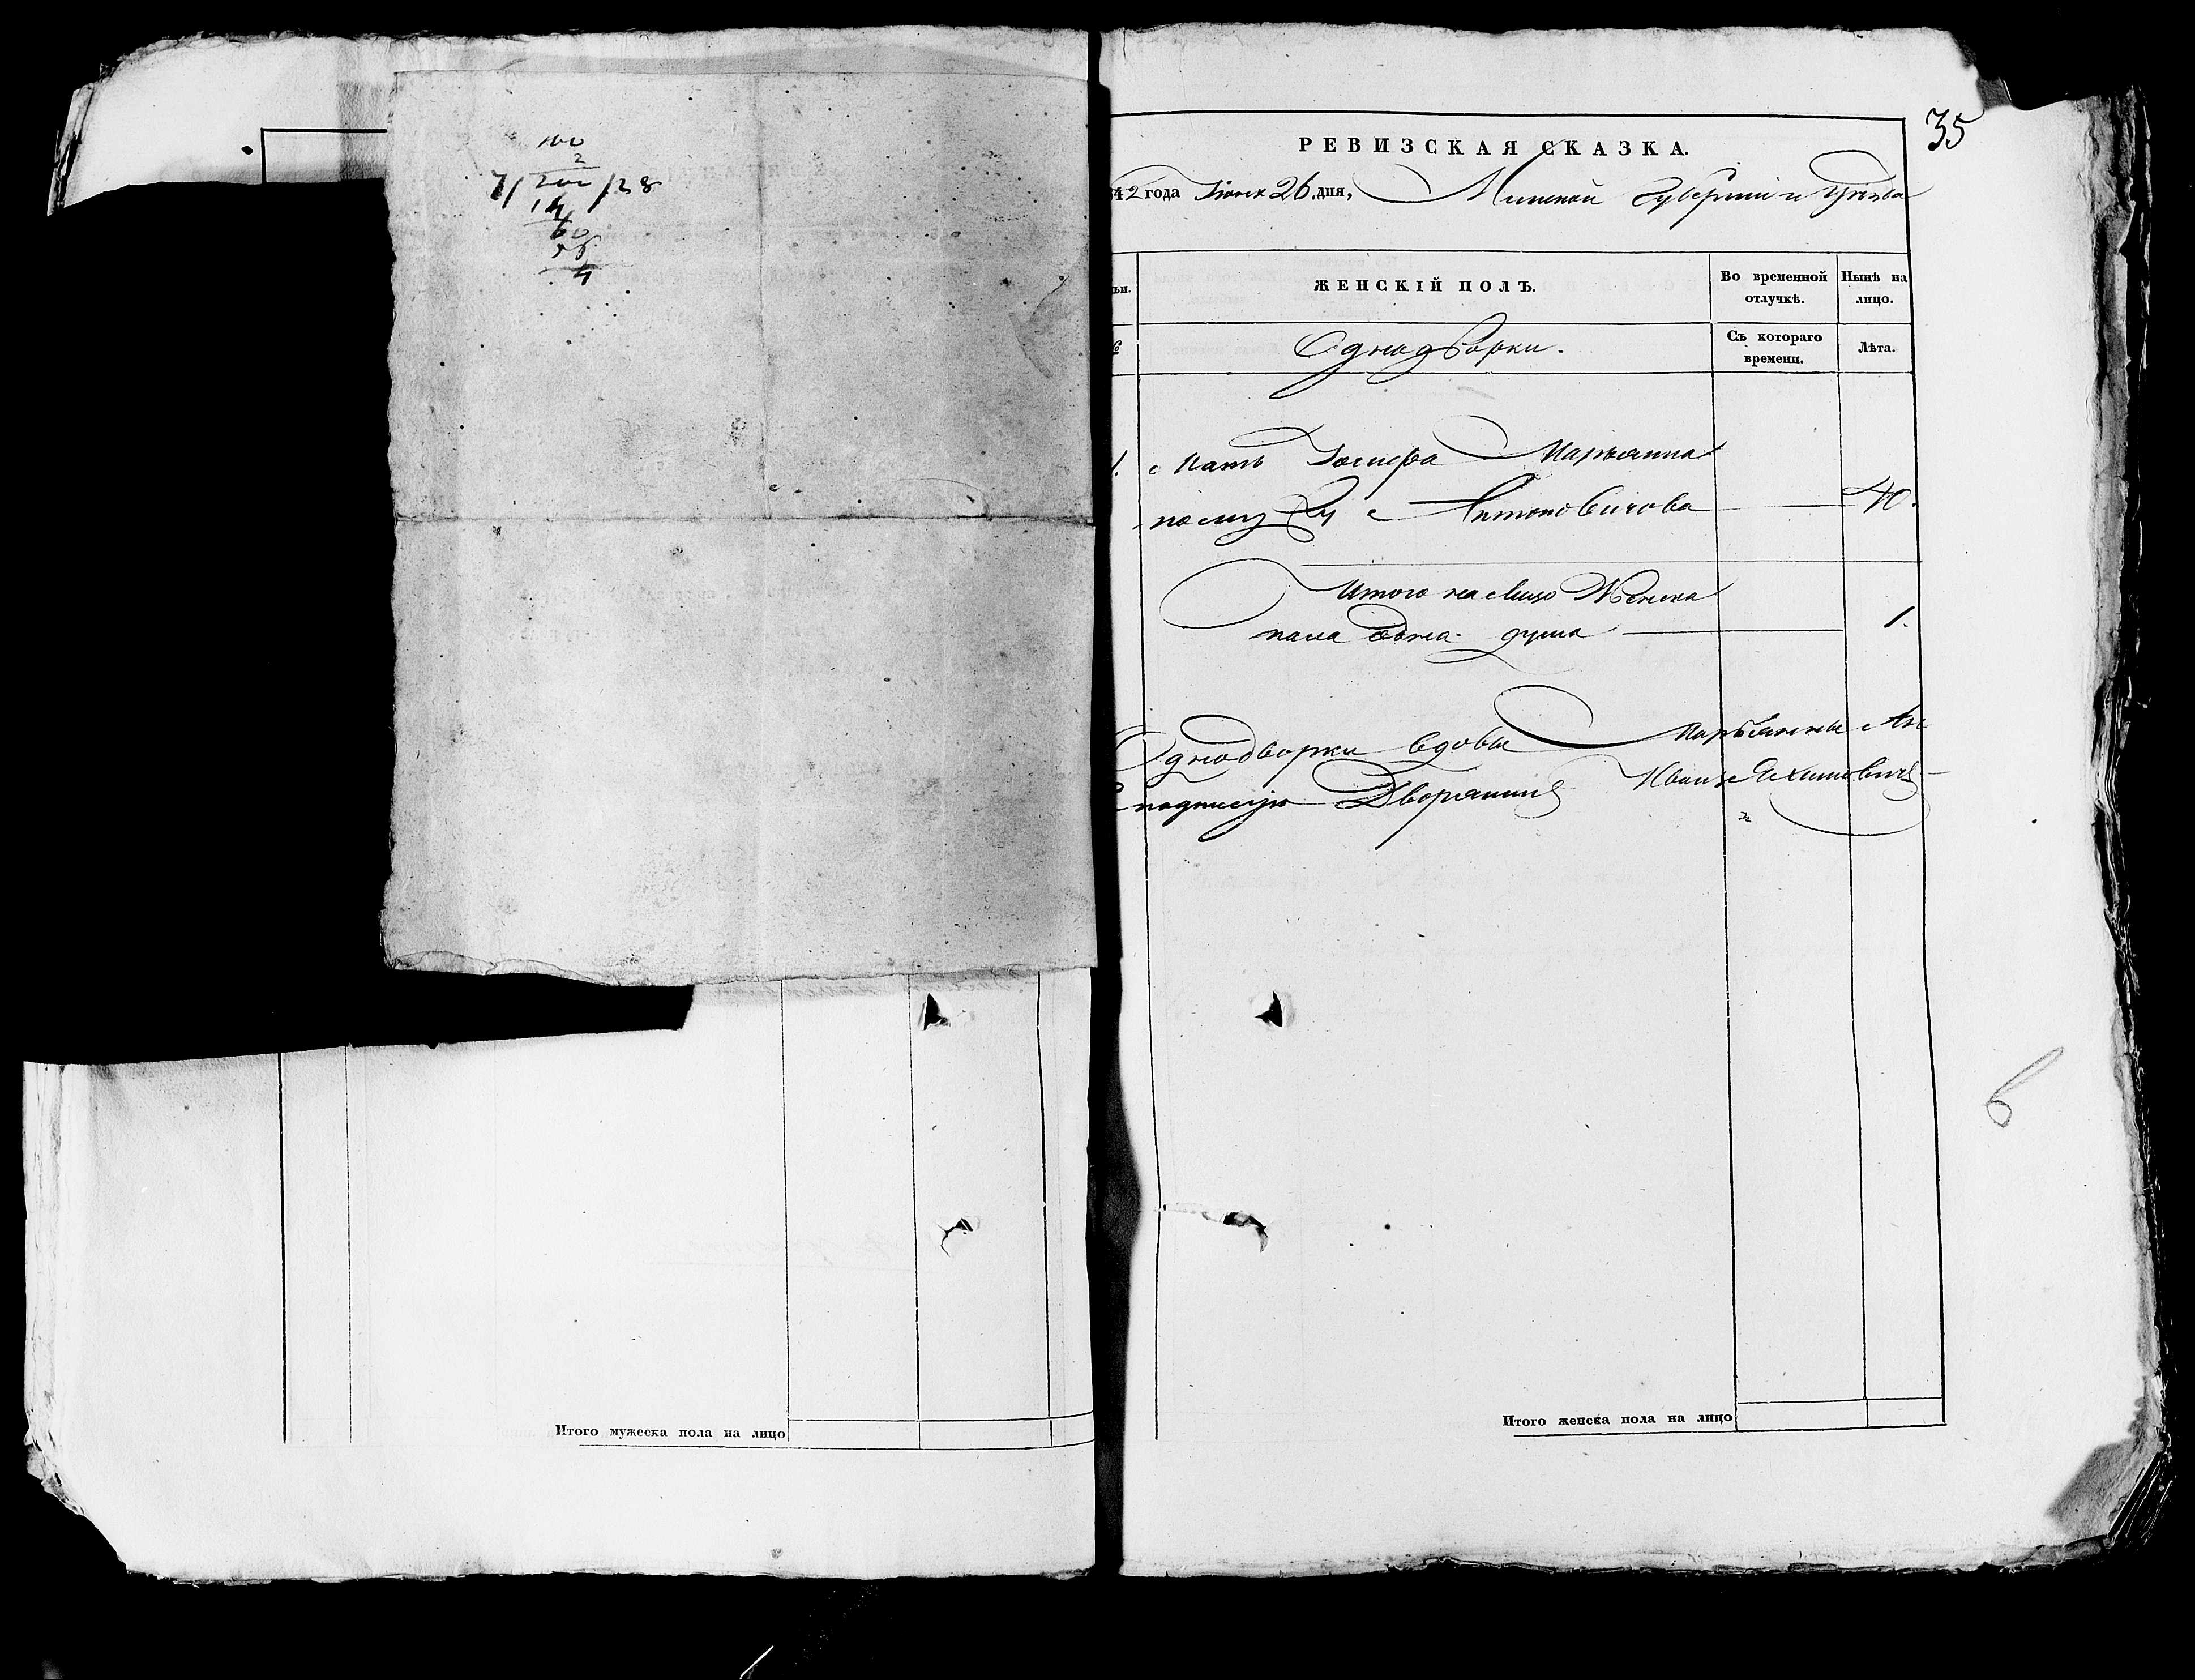 100
2
7/ 202 /28
14
60
56
4
Итого мужеска пола на лицо
35
РЕВИЗСКАЯ СКАЗКА.
42 года Июня 26 дня, Минской Губернии и Уезда
ьи.
ЖЕНСКІЙ ПОЛЪ.
Во временной отлучкѣ.
Нынѣ на лицо.
Однодворки.
Съ котораго времени.
Лѣта.
1. Мать Марьянна
по мужу Антоновичова 40.
Итого на лицо Женска
пола одна душа 1.
Однодворки вдовы Марьянны Ан
подписуюсь Дворянинъ Иванъ Яхимовичъ
Итого женска пола на лицо
6